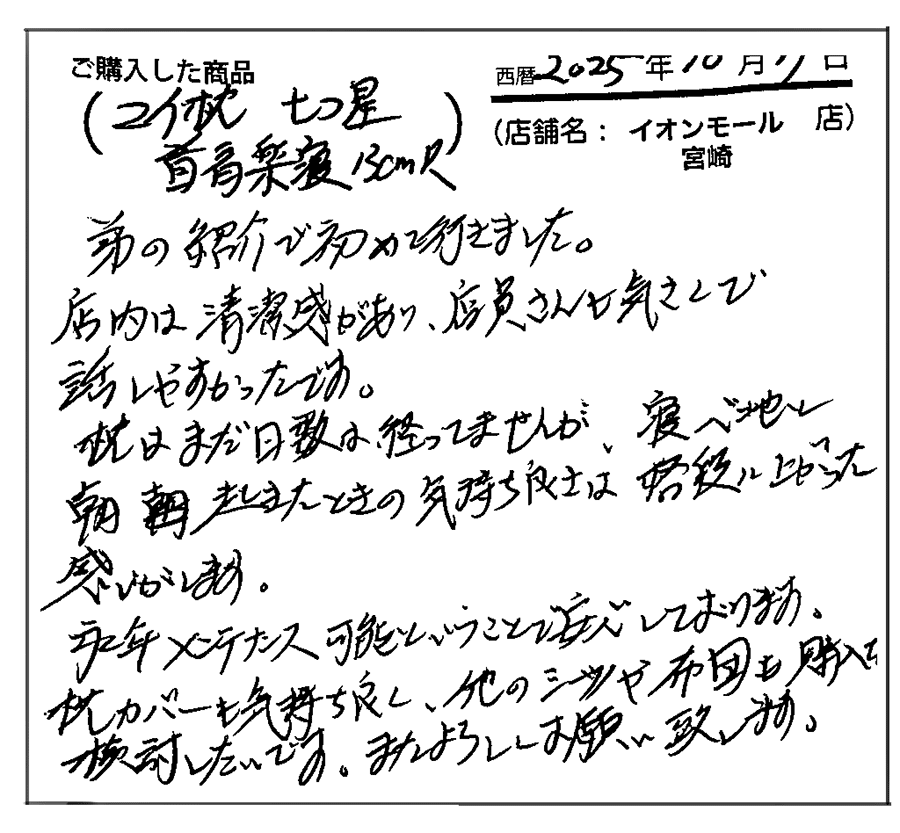 ご購入した商品
西暦 2025年10月17日
(コイ枕 七つ星
首肩楽寝 13cm R)
(店舗名： イオンモール宮崎 店)
弟の紹介で初めて行きました。
店内は清潔感があり、店員さんも気さくで
話しやすかったです。
枕はまだ日数は経ってませんが、寝心地も
朝 起きたときの気持ち良さは 格段に上がった
感じがします。
永年メンテナンス可能ということで安心しております。
枕カバーも気持ち良く、他のシーツや布団も購入を
検討したいです。またよろしくお願い致します。